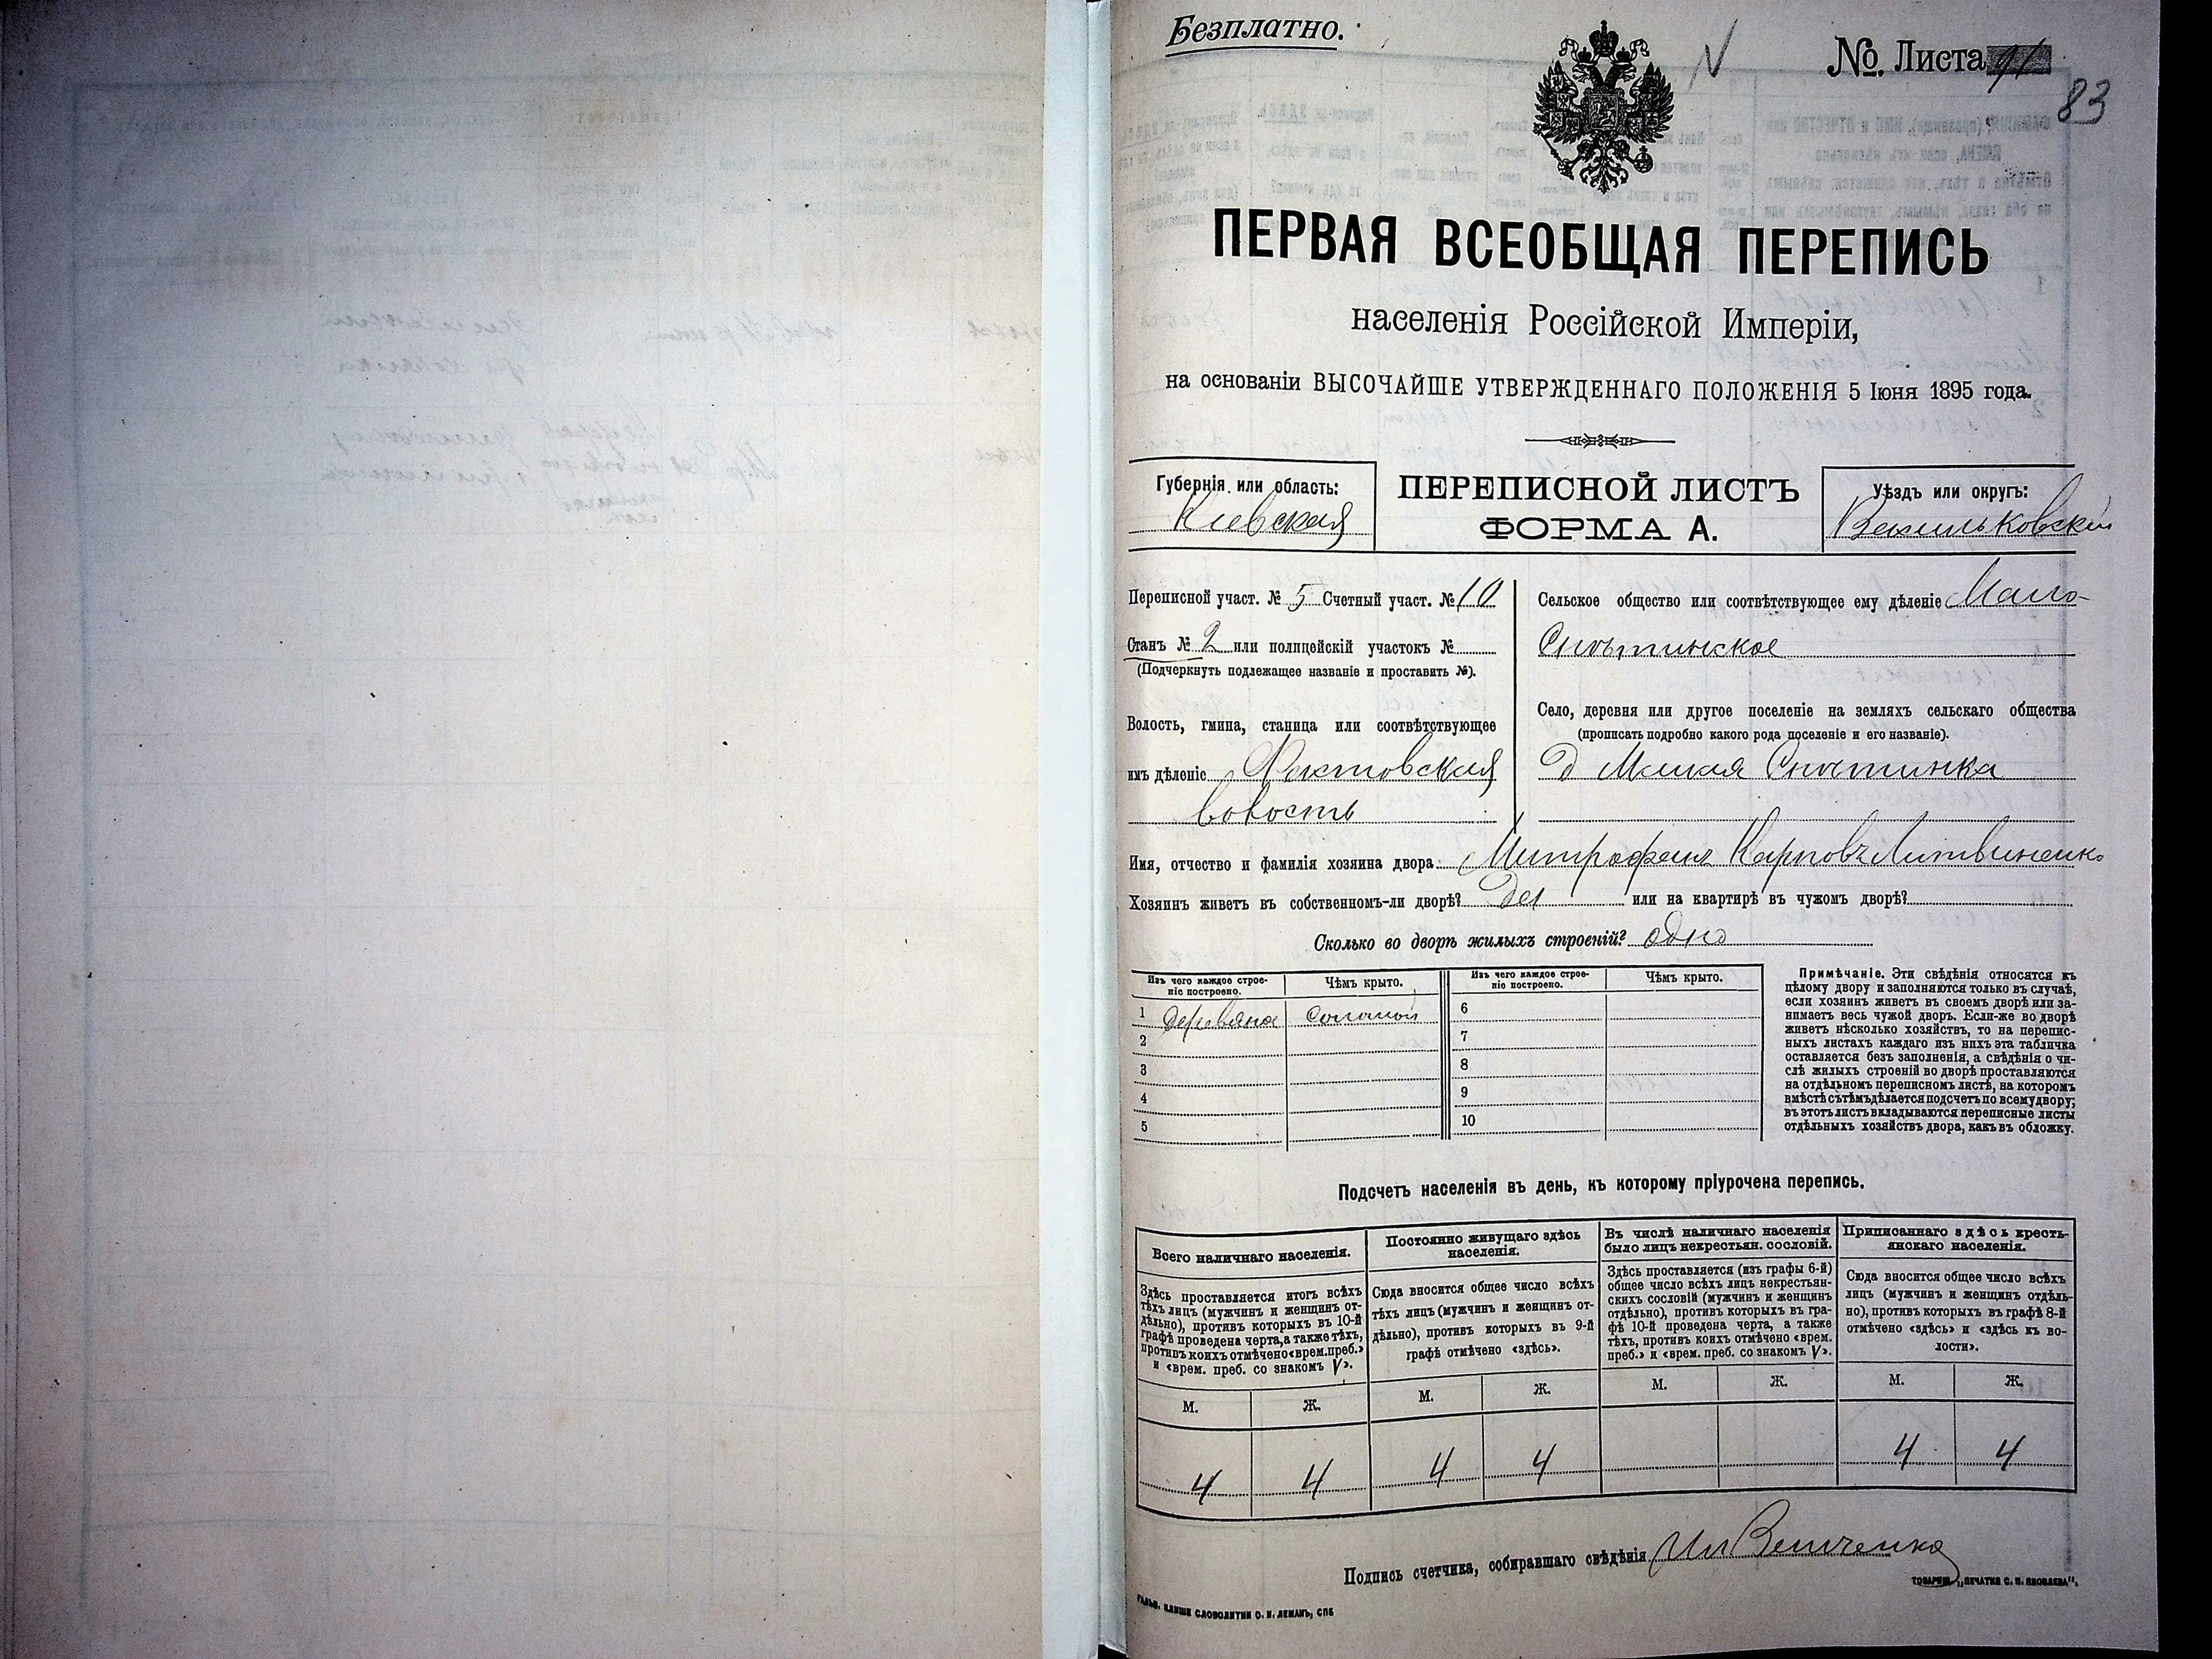 Безплатно.
№. Листа 91
83
ПЕРВАЯ ВСЕОБЩАЯ ПЕРЕПИСЬ
населенія Россійской Имперіи,
на основаніи ВЫСОЧАЙШЕ УТВЕРЖДЕННАГО ПОЛОЖЕНІЯ 5 Іюня 1895 года.
Губернія или область:
Киевская
ПЕРЕПИСНОЙ ЛИСТЪ
ФОРМА А.
Уѣздъ или округъ:
Васильковскій
Переписной участ. № 5 Счетный участ. № 10
Станъ № 2 или полицейскій участокъ №
(Подчеркнуть подлежащее названіе и проставить №).
Волость, гмина, станица или соотвѣтствующее
имъ дѣленіе Фастовская
волость
Сельское общество или соотвѣтствующее ему дѣленіе Мало-
Снѣтинское
Село, деревня или другое поселеніе на земляхъ сельскаго общества
(прописать подробно какого рода поселеніе и его названіе).
д Малая Снѣтинка
Имя, отчество и фамилія хозяина двора Митрофанъ Карповъ Литвиненко
Хозяинъ живетъ въ собственномъ-ли дворѣ? Да или на квартирѣ въ чужомъ дворѣ?
Сколько во дворѣ жилыхъ строеній? одно
Изъ чего каждое строе-
ніе построено.
Чѣмъ крыто.
1 деревяное соломой
2
3
4
5
Изъ чего каждое строе-
ніе построено.
Чѣмъ крыто.
6
7
8
9
10
Примѣчаніе. Эти свѣдѣнія относятся къ
цѣлому двору и заполняются только въ случаѣ,
если хозяинъ живетъ въ своемъ дворѣ или за-
нимаетъ весь чужой дворъ. Если-же во дворѣ
живетъ нѣсколько хозяйствъ, то на перепис-
ныхъ листахъ каждаго изъ нихъ эта табличка
оставляется безъ заполненія, а свѣдѣнія о чи-
слѣ жилыхъ строеній во дворѣ проставляются
на отдѣльномъ переписномъ листѣ, на которомъ
вмѣстѣ съ тѣмъ дѣлается подсчетъ по всему двору;
въ этотъ листъ вкладываются переписные листы
отдѣльныхъ хозяйствъ двора, какъ въ обложку.
Подсчетъ населенія въ день, къ которому пріурочена перепись.
Всего наличнаго населенія.
Здѣсь проставляется итогъ всѣхъ
тѣхъ лицъ (мужчинъ и женщинъ от-
дѣльно), противъ которыхъ въ 10-й
графѣ проведена черта, а также тѣхъ,
противъ коихъ отмѣчено «врем. преб.»
и «врем. преб. со знакомъ V».
М. Ж.
4 4
Постоянно живущаго здѣсь
населенія.
Сюда вносится общее число всѣхъ
тѣхъ лицъ (мужчинъ и женщинъ от-
дѣльно), противъ которыхъ въ 9-й
графѣ отмѣчено «здѣсь».
М. Ж.
4 4
Въ числѣ наличнаго населенія
было лицъ некрестьян. сословій.
Здѣсь проставляется (изъ графы 6-й)
общее число всѣхъ лицъ некрестьян-
скихъ сословій (мужчинъ и женщинъ
отдѣльно), противъ которыхъ въ гра-
фѣ 10-й проведена черта, а также
тѣхъ, противъ коихъ отмѣчено «врем.
преб.» и «врем. преб. со знакомъ V».
М. Ж.
Приписаннаго здѣсь кресть-
янскаго населенія.
Сюда вносится общее число всѣхъ
лицъ (мужчинъ и женщинъ отдѣль-
но), противъ которыхъ въ графѣ 8-й
отмѣчено «здѣсь» и «здѣсь къ во-
лости».
М. Ж.
4 4
Подпись счетчика, собиравшаго свѣдѣнія
ГАЛЬВ. КЛИШЕ СЛОВОЛИТНИ О. И. ЛЕМАНЪ, СПБ
ТОВАРИЩ. „ПЕЧАТНЯ С. П. ЯКОВЛЕВА".